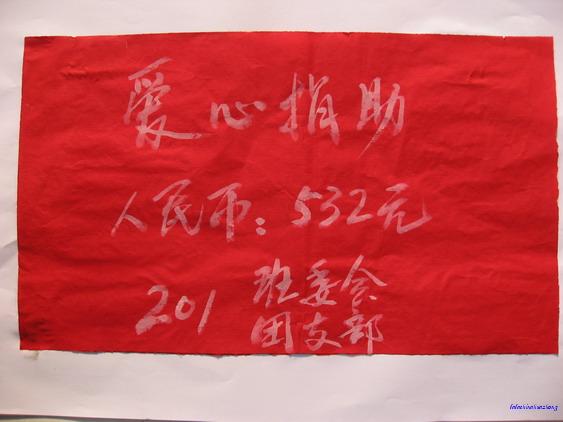 爱心捐助
人民币：532元
201 班委会
团支部